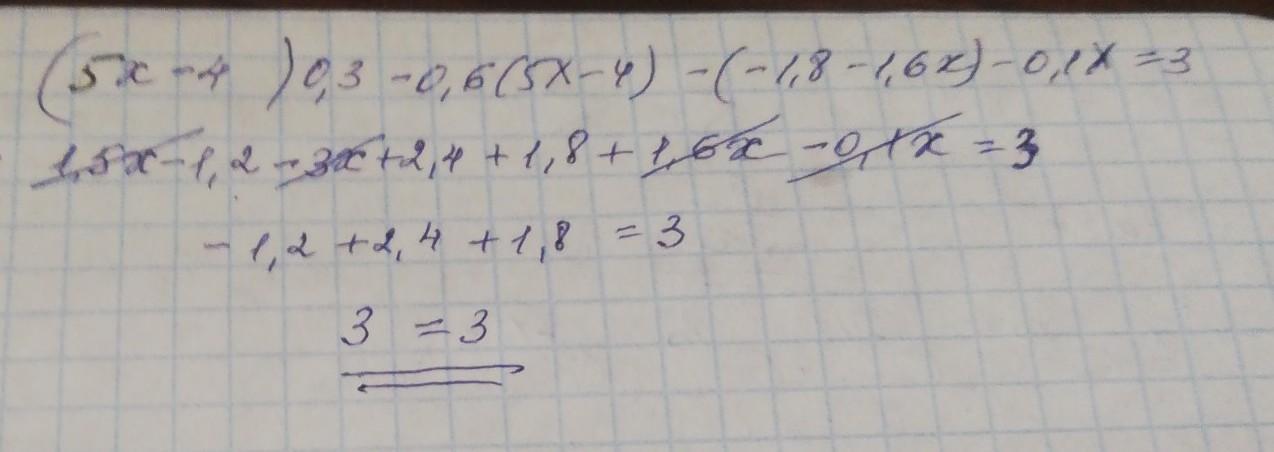 (5x - 4 ) 0,3 - 0,6(5x - 4) - (-1,8 - 1,6x) - 0,1x = 3
1,5x - 1,2 - 3x + 2,4 + 1,8 + 1,6x - 0,1x = 3
- 1,2 + 2,4 + 1,8 = 3
3 = 3